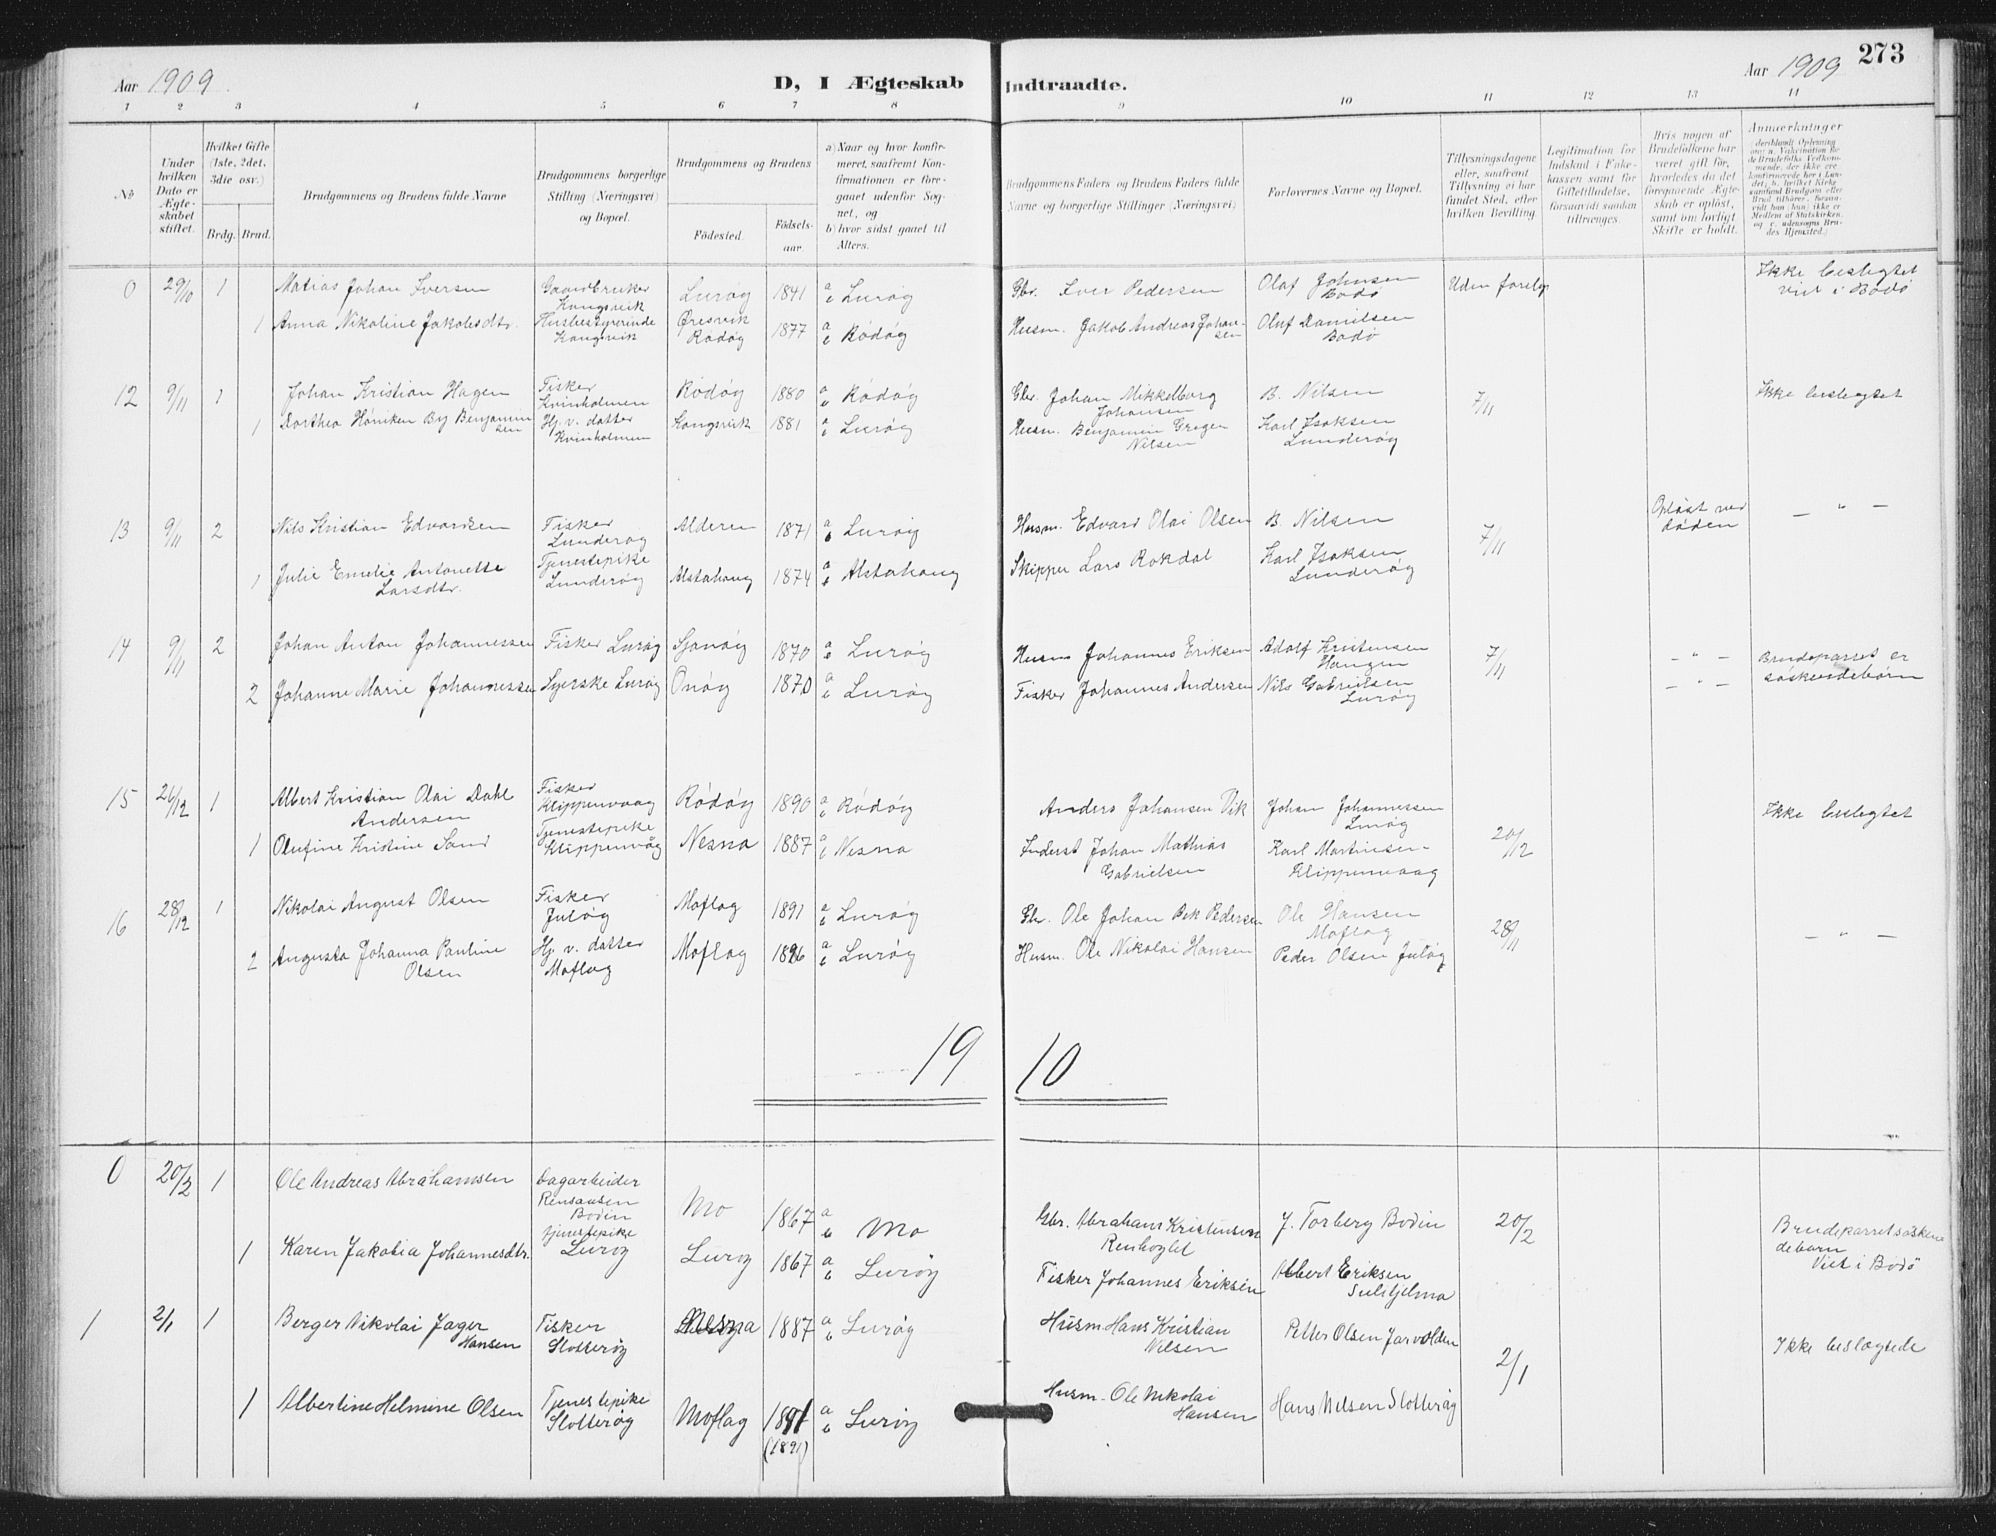 Aar 1909.
D, I Ægteskab Indtraadte.
Aar 1909
273
1 2 3 4 5 6 7 8 9 10 11 12 13 14
No
Under hvilken Dato er Ægteskabet stiftet.
Hvilket Gifte (1ste, 2det, 3die osv.)
Brdg. Brud.
Brudgommens og Brudens fulde Navne
Brudgommens borgerlige Stilling (Næringsvei) og Bopæl.
Brudgommens og Brudens
Fødested. Fødselsaar.
a) Naar og hvor konfirmeret, saafremt Konfirmationen er foregaaet udenfor Sognet, og
b) hvor sidst gaaet til Alters.
Brudgommens Faders og Brudens Faders fulde Navne og borgerlige Stillinger (Næringsvei)
Forlovernes Navne og Bopæl.
Tillysningsdagene eller, saafremt Tillysning ei har fundet Sted, efter hvilken Bevilling.
Legitimation for Indskud i Enkekassen samt for Giftetilladelse, forsaavidt saadan tiltrænges.
Hvis nogen af Brudefolkene har været gift før, hvorledes da det foregaaende Ægteskab er opløst, samt om lovligt Skifte er holdt.
Anmærkninger
0 29/10 1 Matias Johan Iversen Gaardbruker Kongsvik Lurøy 1841 a b Lurøy Gbr. Iver Pedersen Olaf Johnsen Bodø Uden forelys Ikke beslegtet viet i Bodø
1 Anna Nikoline Jakobsdtr. Husbestyrerinde Kongsvik Øresvik Rødøy 1877 a b Rødøy Husm. Jakob Andreas Johansen Oluf Danielsen Bodø
12 9/11 1 Johan Kristian Hagen Fisker Kvinholmen Rødøy 1880 a b Rødøy Gbr. Johan Mikkelborg Johansen B. Nilsen 7/11 Ikke beslegtet
1 Dorthea Høniken By Benjaminsen Hj. v. datter Kvinholmen Kongsvik 1881 a b Lurøy Husm. Benjamin Greger Nilsen Karl Isaksen Lunderøy
13 9/11 2 Nils Kristian Edvardsen Fisker Lunderøy Alderen 1871 a b Lurøy Husm. Edvard Olai Olsen B. Nilsen 7/11 Opløst ved døden — " —
1 Julie Emelie Antonette Larsdtr. Tjenestepike Lunderøy Alstahaug 1874 a b Alstahaug Skipper Lars Rokdal Karl Isaksen Lunderøy
14 9/11 2 Johan Anton Johannessen Fisker Lurøy Sjonøy 1870 a b Lurøy Husm Johannes Eriksen Adolf Kristensen Haugen 7/11 — " — Brudeparret er søskendebørn
2 Johanne Marie Johannessen Syerske Lurøy Onøy 1870 a b Lurøy Fisker Johannes Andersen Nils Gabrielsen Lurøy — " —
15 26/12 1 Albert Kristian Olai Dahl Andersen Fisker Klippenvaag Rødøy 1890 a b Rødøy Anders Johansen Vik Johan Johannessen Lurøy 20/12 Ikke beslegtet
1 Olufine Kristine Sand Tjenestepike Klippenvåg Nesna 1887 a b Nesna Inderst Johan Mathias Gabrielsen Karl Martinsen Klippenvaag
16 28/12 1 Nikolai August Olsen Fisker Juløy Moflag 1891 a b Lurøy Gbr. Ole Johan Bek Pedersen Ole Hansen Moflag 28/11 — " —
2 Augusta Johanna Pauline Olsen Hj. v. datter Moflag Moflag 1886 a b Lurøy Husm. Ole Nikolai Hansen Peder Olsen Juløy
19 10
0 20/2 1 Ole Andreas Abrahamsen Dagarbeider Bodin Mo 1867 a b Mo Gbr. Abraham Kristensen J. Torberg Bodin 20/2 Brudeparret søskendebarn Viet i Bodø
1 Karen Jakobia Johannesdtr. tjenestepike Lurøy Lurøy 1867 a b Lurøy Fisker Johannes Eriksen Albert Eriksen Sulitjelma
1 2/1 1 Berger Nikolai Jager Hansen Fisker Slotterøy Nesna 1887 a b Lurøy Husm Hans Kristian Nilsen Petter Olsen Jarvolden 2/1 Ikke beslægtede
1 Albertine Helmine Olsen Tjenestepike Slotterøy Moflag 1891 (1891) a b Lurøy Husm. Ole Nikolai Hansen Hans Nilsen Slotterøy